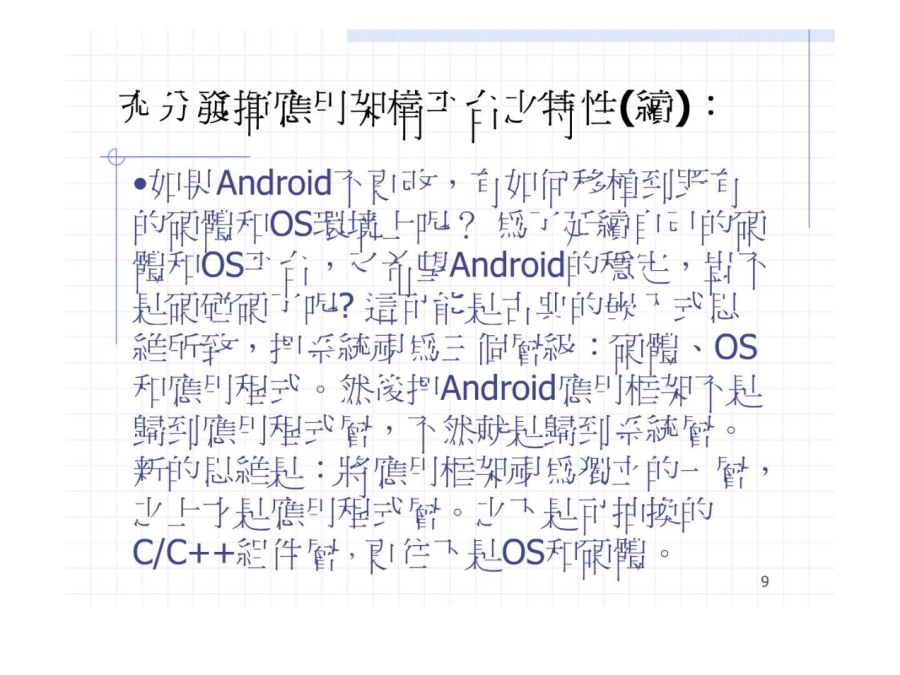 充分發揮應用架構平台之特性(續)：
•如果Android不更改，有如何移植到既有
的硬體和OS環境上呢？ 為了延續自己的硬
體和OS平台，又希望Android的穩定，豈不
是硬碰硬了呢? 這可能是古典的嵌入式思
維所致，把系統劃為三個層級：硬體、OS
和應用程式。然後把Android應用框架不是
歸到應用程式層，不然就是歸到系統層。
新的思維是：將應用框架劃為獨立的一層，
之上才是應用程式層。之下是可抽換的
C/C++組件層，再往下是OS和硬體。
9